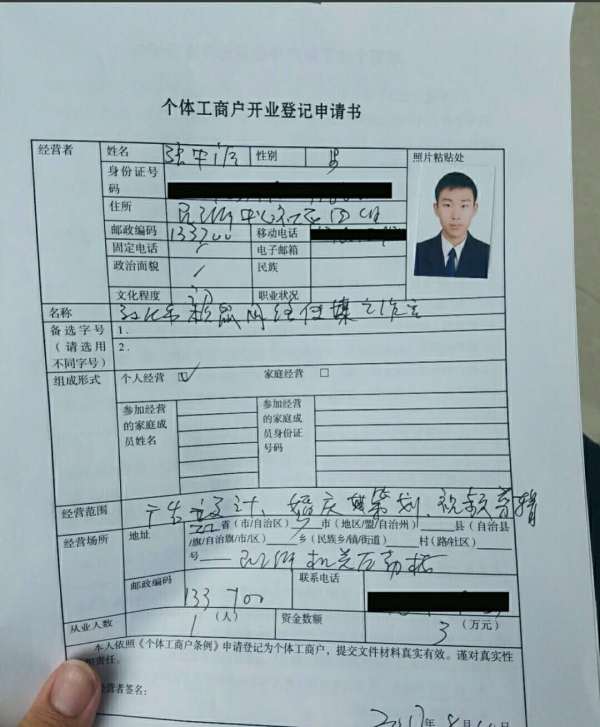 个体工商户开业登记申请书
经营者
姓名
张
性别
男
照片粘贴处
身份证号码
住所
邮政编码
133700
移动电话
固定电话
/
电子邮箱
政治面貌
/
民族
文化程度
职业状况
名称
敦化市 网络传媒工作室
备选字号（请选用不同字号）
1.
2.
组成形式
个人经营 ☑
家庭经营 □
参加经营的家庭成员姓名
参加经营的家庭成员身份证号码
经营范围
广告设计、婚庆策划、视频剪辑
经营场所
地址
省（市/自治区） 市（地区/盟/自治州） 县（自治县
/旗/自治旗/市/区） 乡（民族乡/镇/街道） 村（路/社区）
号
邮政编码
133700
联系电话
从业人数
1（人）
资金数额
3（万元）
本人依照《个体工商户条例》申请登记为个体工商户，提交文件材料真实有效。谨对真实性
责任。
经营者签名：
年8月